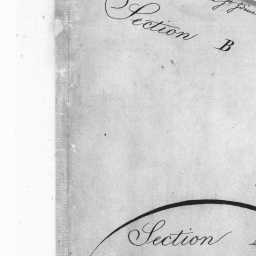 Section B
Section